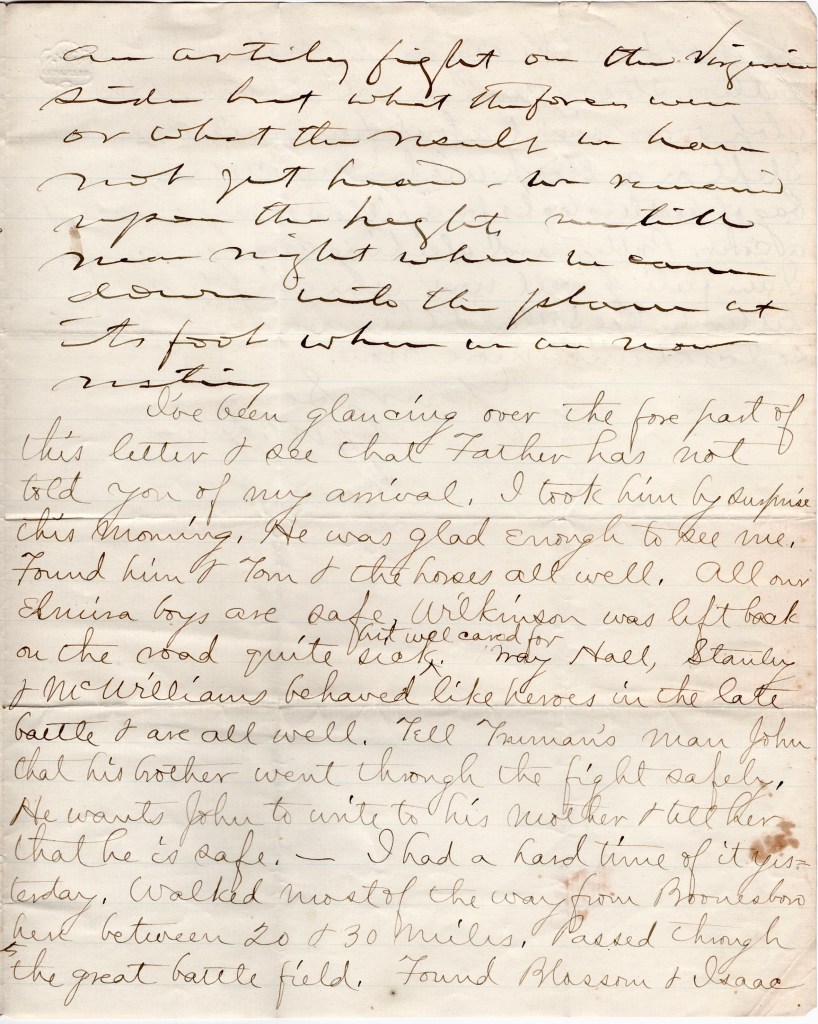 an artiley fight on the Virginia
side but what the forces were
or what the result we have
not yet heard - we remained
upon the heights untill
near night when we came
down into the plain at
its foot where we are now
resting
I've been glancing over the fore part of
this letter & see that Father has not
told you of my arrival. I took him by surprise
this morning. He was glad enough to see me.
Found him & Tom & the horses all well. All our
Elmira boys are safe. Wilkinson was left back
but well cared for
on the road quite sick. Hall, Stanley
& McWilliams behaved like heroes in the late
battle & are all well. Tell Truman's man John
that his brother went through the fight safely.
He wants John to write to his mother & tell her
that he is safe. — I had a hard time of it yis=
terday. Walked most of the way from Boonesboro
here between 20 & 30 miles. Passed through
the great battle field. Found Blossom & Isaac